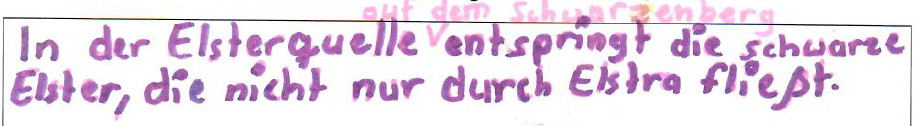 auf dem Schwarzenberg
In der Elsterquelle V entspringt die schwarze
Elster, die nicht nur durch Elstra fließt.